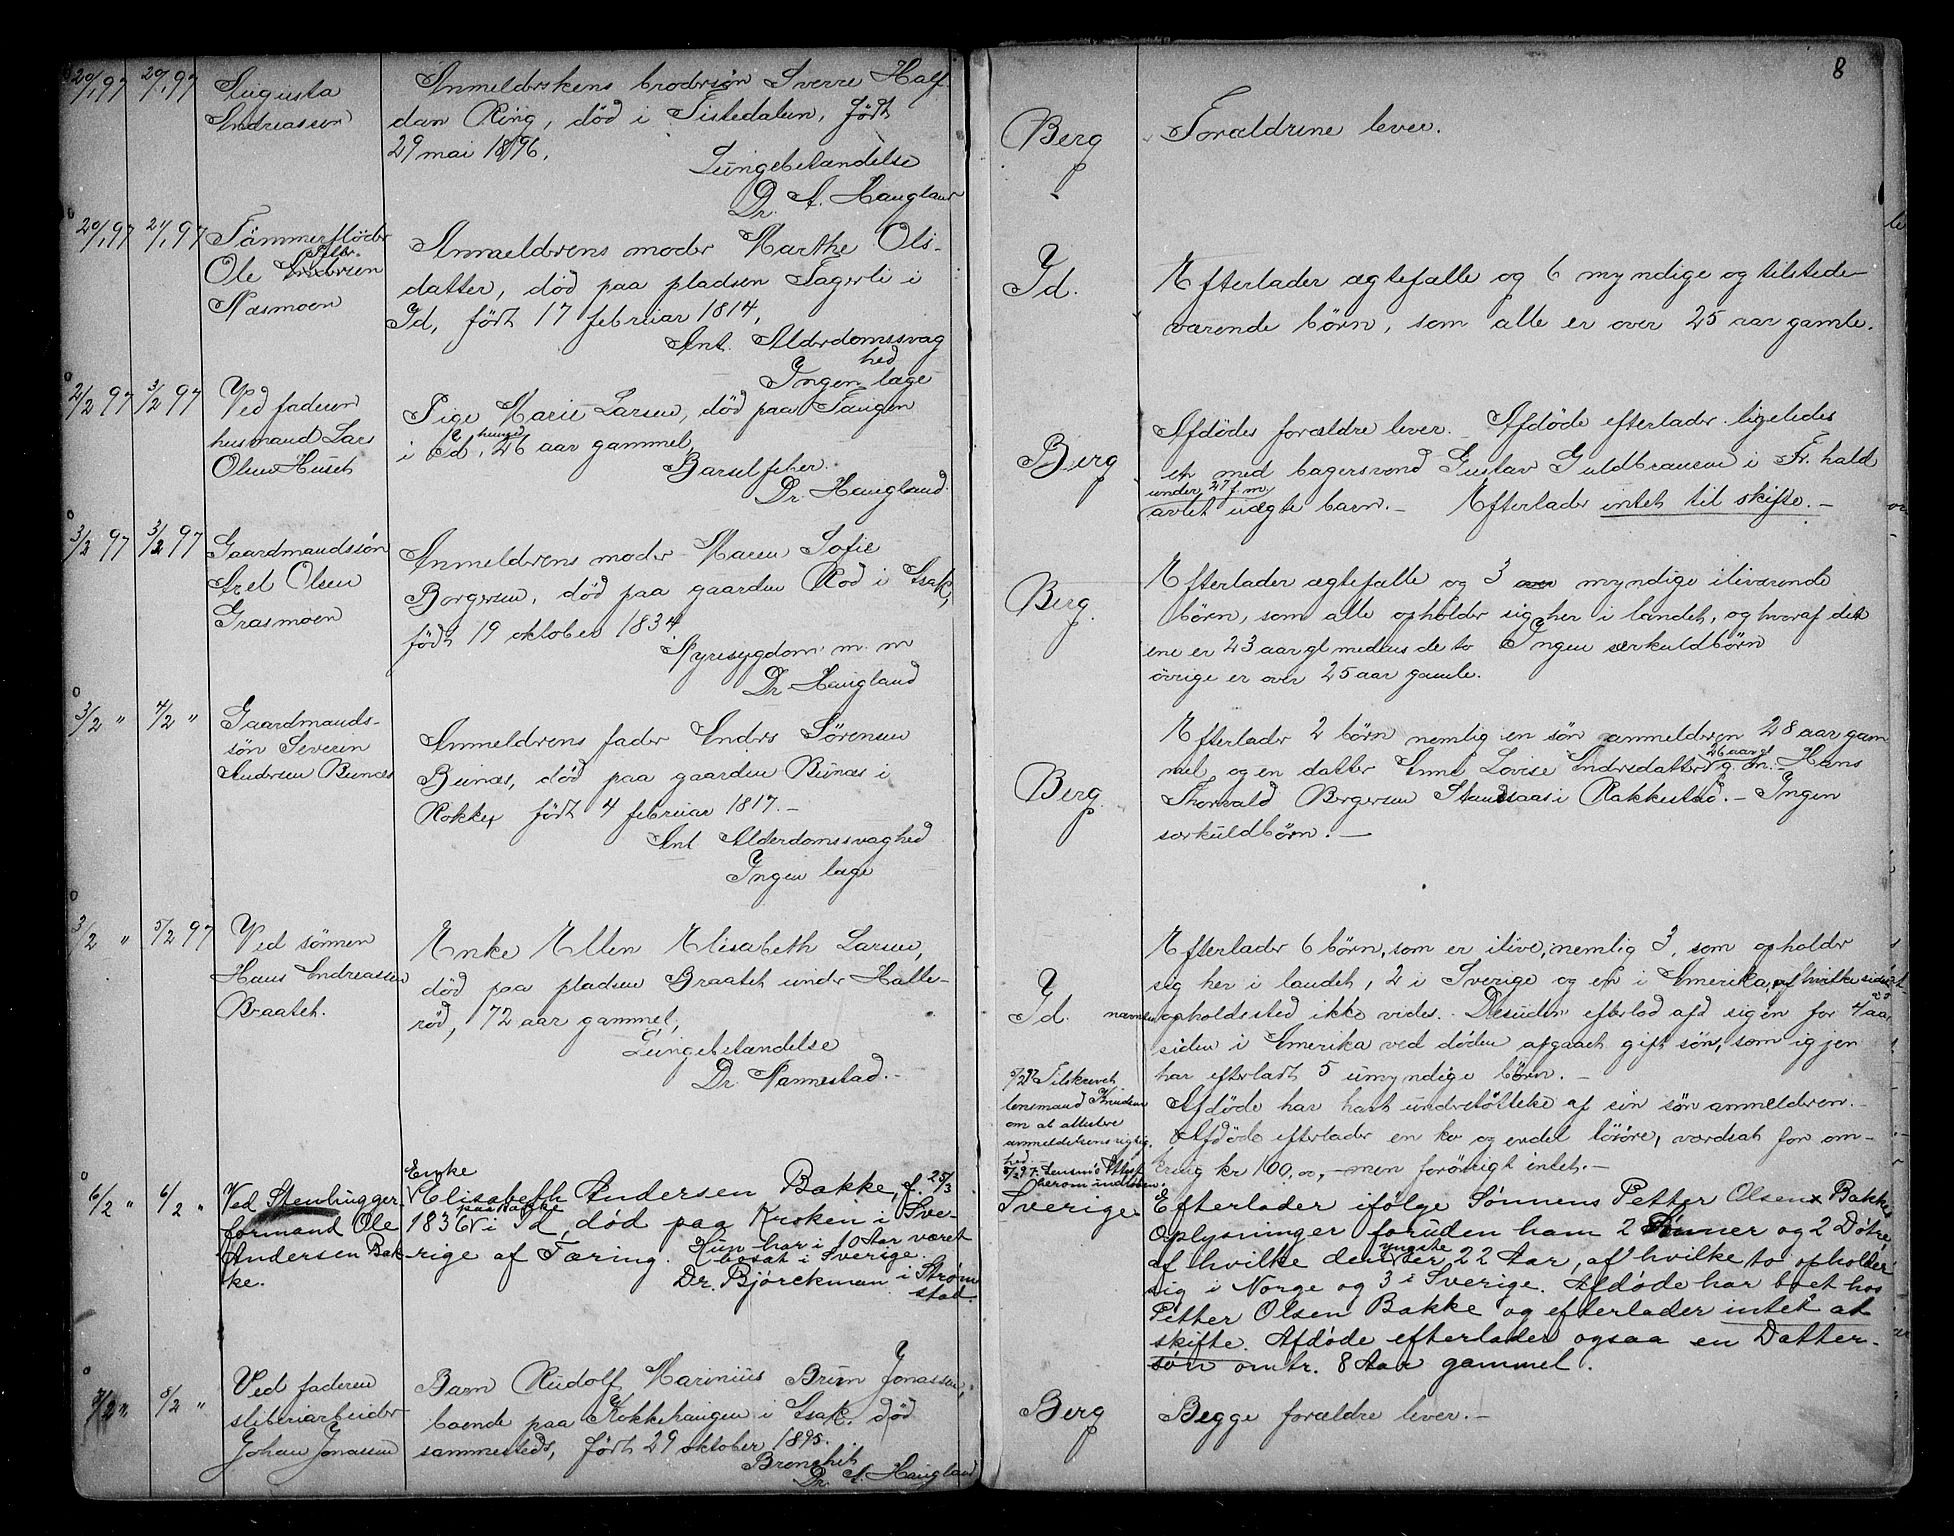 8
20/1 97 20/1 97
Augusta
Andreassen
Anmelderskens brodersøn Sverre Half
dan Ring, død i Tistedalen, født
29 mai 1896,
Lungebetændelse
Dr. A. Haugland
Berg
Forældrene lever.
20/1 97 21/1 97
Tømmerfløder
Ole
Næsmoen
Anmelderens moder Marthe Ols-
datter, død paa pladsen Fagerli i
Id, født 17 februar 1814,
Ant. Alderdomssvag
hed
Ingen læge
Id.
Efterlader ægtefælle og 6 myndige og tilstede-
værende børn, som alle er over 25 aar gamle.
2/2 97 3/2 97
Ved faderen
husmand Lars
Olsen Huset
Pige Marie Larsen, død paa Tangen
i Id, 26 aar gammel
Barselfeber.
Dr. Haugland.
Berg
Afdødes forældre lever. – Afdøde efterlader ligeledes
et med bagersvend Gustav Guldbransen i Fr.hald
under 27 f. m.
avlet uægte barn. – Efterlader intet til skifte. –
3/2 97 3/2 97
Gaardmandssøn
Axel Olsen
Grasmoen
Anmelderens moder Maren Sofie
Borgersen, død paa gaarden Rød i Isak,
født 19 oktober 1834
Nyresygdom m. m
Dr. Haugland
Berg.
Efterlader ægtefælle og 3 myndige ilivværende
børn, som alle opholder sig her i landet, og hvoraf det
ene er 23 aar gl medens de to Ingen særkuldbørn
øvrige er over 25 aar gamle.
3/2 " 4/2 "
Gaardmands-
søn Severin
Andersen Bunæs
Anmelderens fader Anders Sørensen
Bunæs, død paa gaarden Bunæs i
Rokke, født 4 februar 1817. –
Ant. Alderdomssvaghed
Ingen læge
Berg
Efterlader 2 børn nemlig en søn anmelderen 28 aar gam
mel, og en datter Anne Lovise Andersdatter 26 aar gl. g. m. Hans
Thorvald Borgersen i Rakkestad. – Ingen
særkuldbørn. –
3/2 " 5/2 97
Ved sønnen
Hans Andreassen
Braatet.
Enke Ellen Elisabeth Larsen,
død paa pladsen Braatet under Halle-
rød, 72 aar gammel,
Lungebetændelse
Dr. Nannestad. –
Id.
Efterlader 6 børn, som er ilive, nemlig 3, som opholder
sig her i landet, 2 i Sverige og en i Amerika, af hvilke sidst-
nævnte opholdested ikke vides. – Desuden efterlod afd sig en for 4 aar
siden i Amerika ved døden afgaaet gift søn, som igjen
har efterladt 5 umyndige børn. –
Afdøde har havt understøttelse af sin søn anmelderen. –
Afdøde efterlader en ko og endel løsøre, værdsat for om-
kring kr 100,00, – men forøvrigt intet. –
5/2 97 Tilskrevet
lensmand Knudsen
om at attestere
anmeldelsens rigtig
hed. –
6/2 " 6/2 "
Ved Stenhugger-
formand Ole
Andersen Bak-
ke.
Enke
Elisabeth Andersen Bakke, f. 25/3
1836 paa Bakke i Id, død paa Kroken i Sve-
rige af Tæring. Hun har i 10 Aar været
bosat i Sverige.
Dr. Björckman i Strøm
stad.
Sverige
Efterlader ifølge Sønnens Petter Olsen Bakkes
Oplysninger foruden ham 2 Sønner og 2 Døtre,
af hvilke den yngste er 22 Aar, af hvilke to opholder
sig i Norge og 3 i Sverige. Afdøde har boet hos
Petter Olsen Bakke og efterlader intet at
skifte. Afdøde efterlader ogsaa en Datter-
søn omtr. 8 Aar gammel.
7/2 " 8/2 "
Ved faderen
sliberiarbeider
Johan Jonassen
Barn Rudolf Marinius Brun Jonassen,
boende paa Kokkehaugen i Isak, død
sammesteds, født 29 oktober 1895.
Bronchit
Dr. A. Haugland
Berg
Begge forældre lever. –